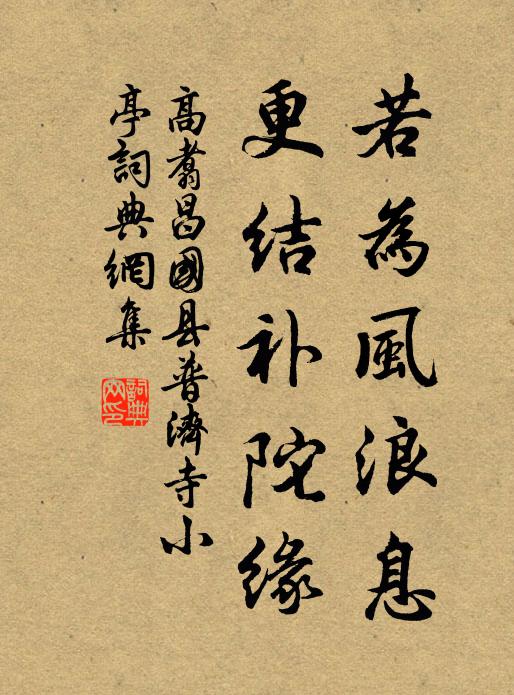 若為風浪息
更结补陀緣
高翥昌國县普濟寺小
亭詞典網集
詞典